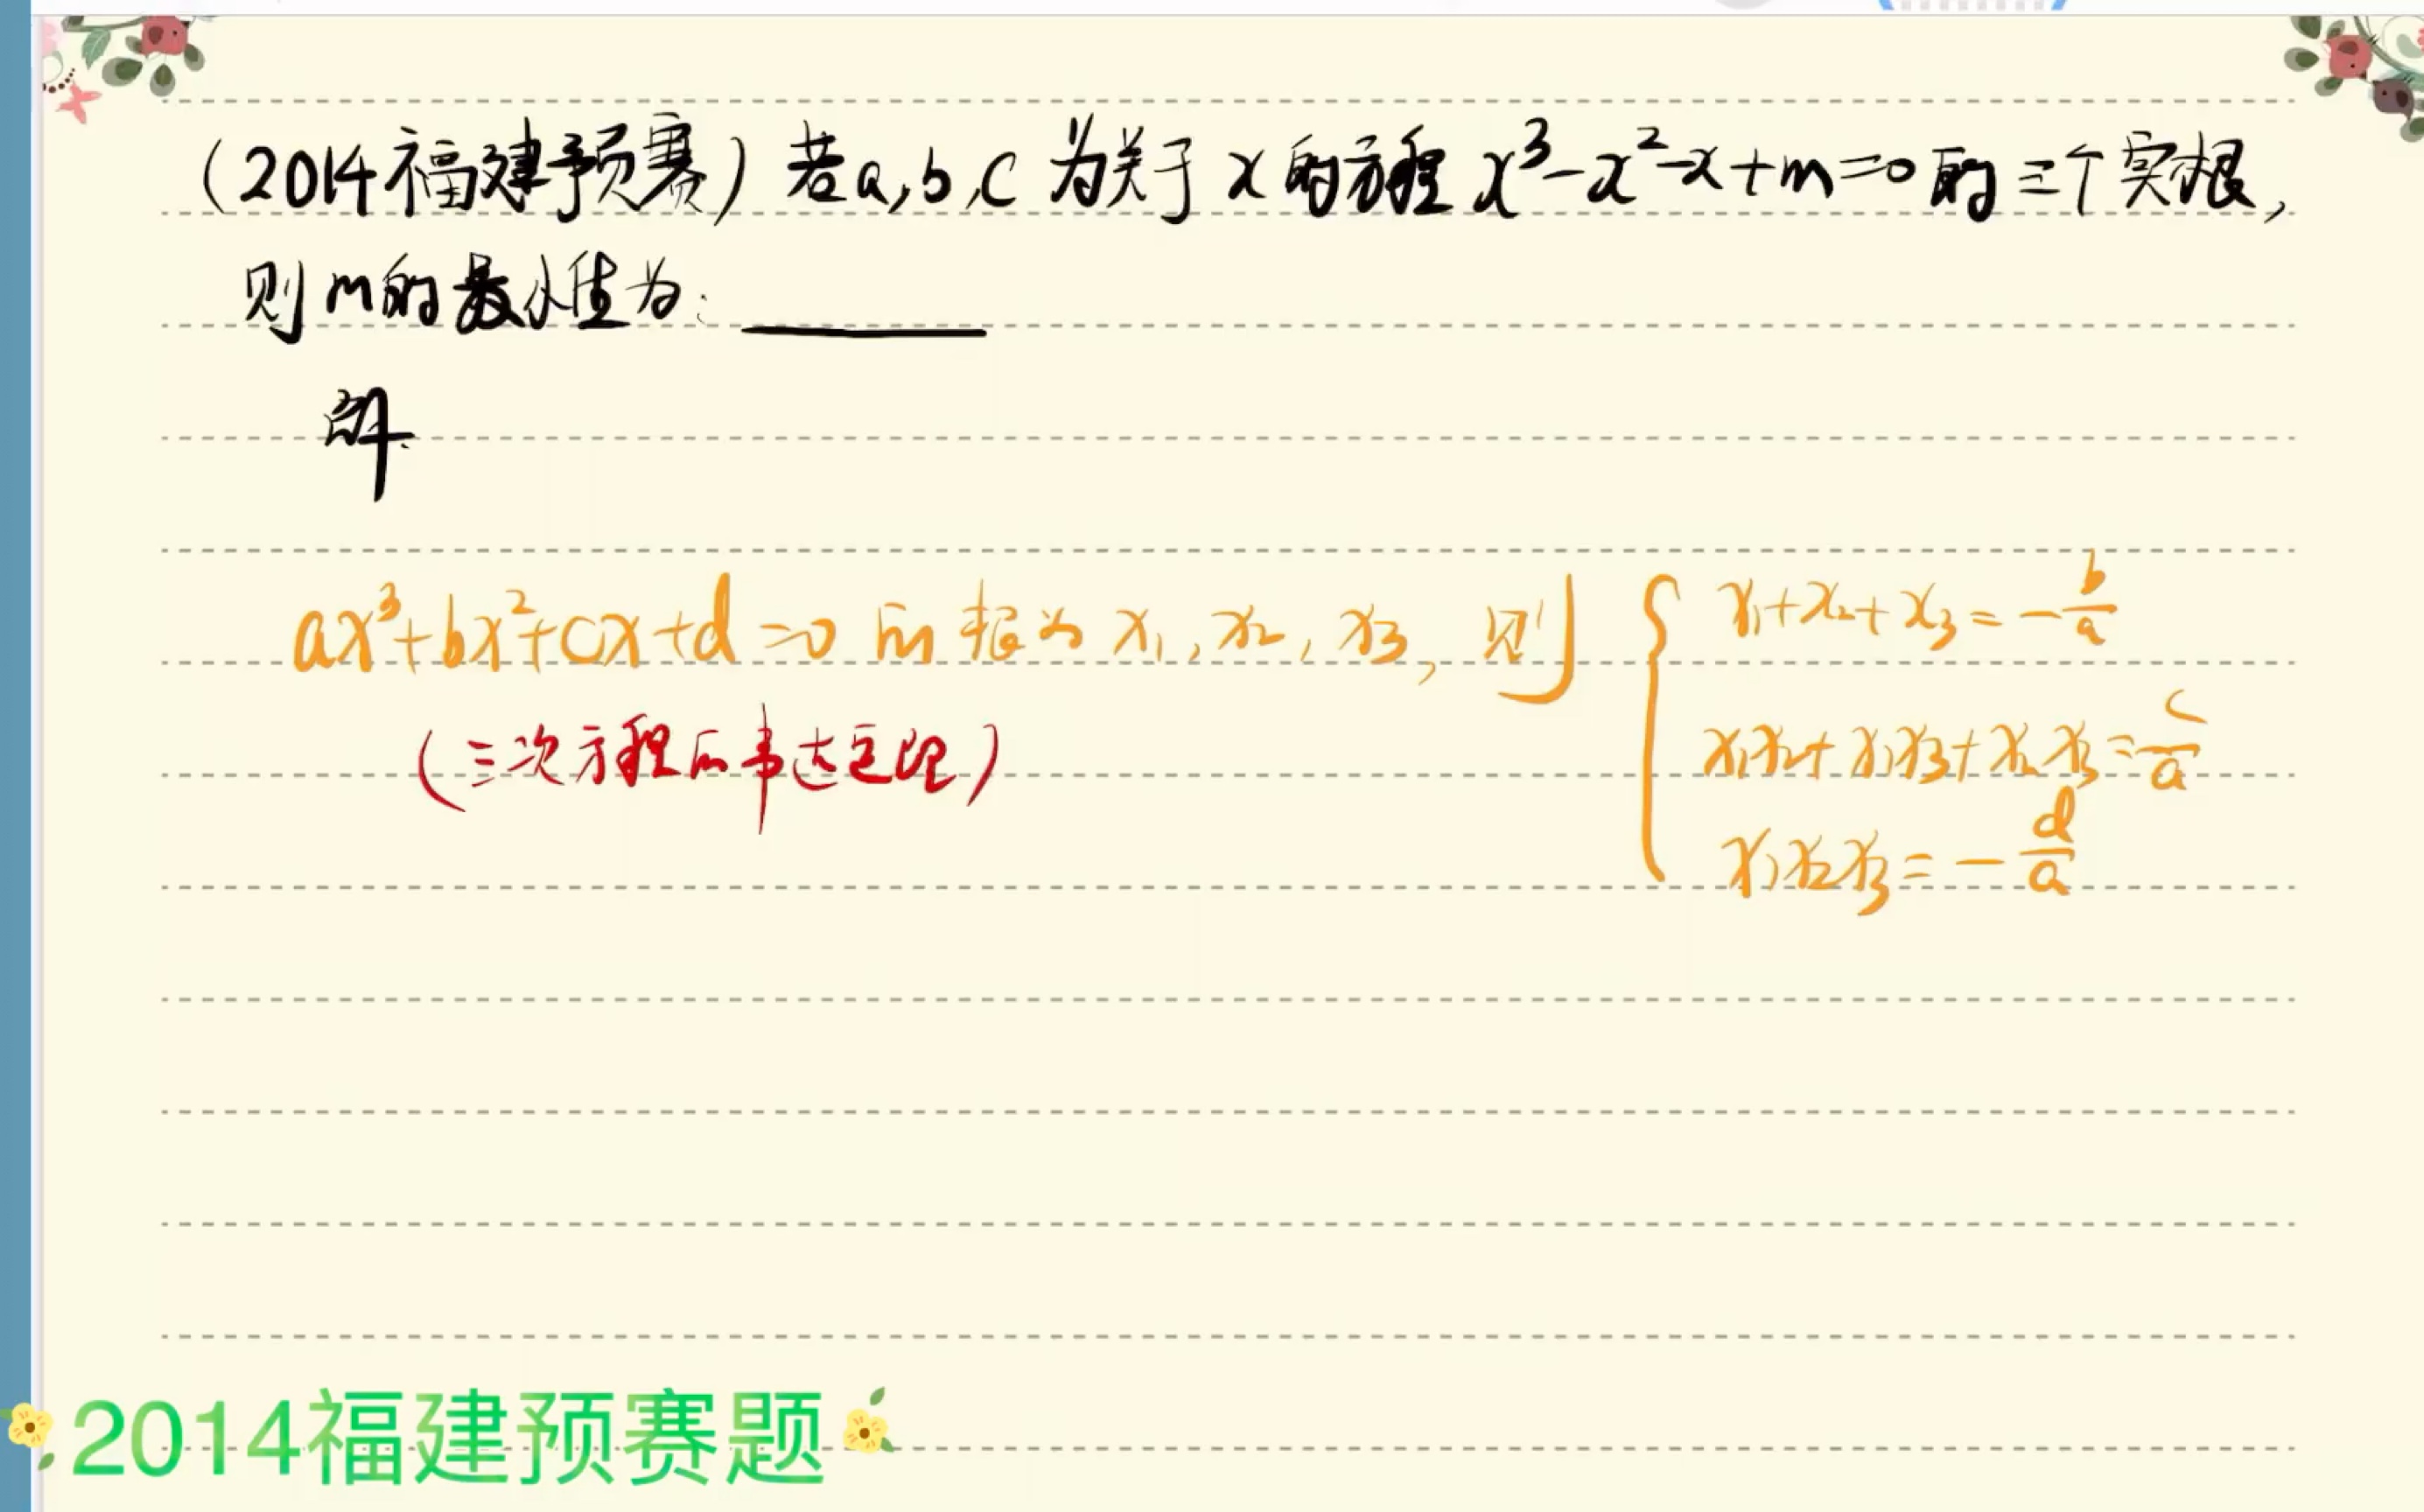 (2014福建预赛) 若a,b,c 为关于 x 的方程 x³-x²-x+m=0 的三个实根,
则m的最小值为: ______
解
ax³+bx²+cx+d=0 的根为 x₁, x₂, x₃, 则
x₁+x₂+x₃=-b/a
x₁x₂+x₁x₃+x₂x₃=c/a
x₁x₂x₃=-d/a
(三次方程的韦达定理)
2014福建预赛题